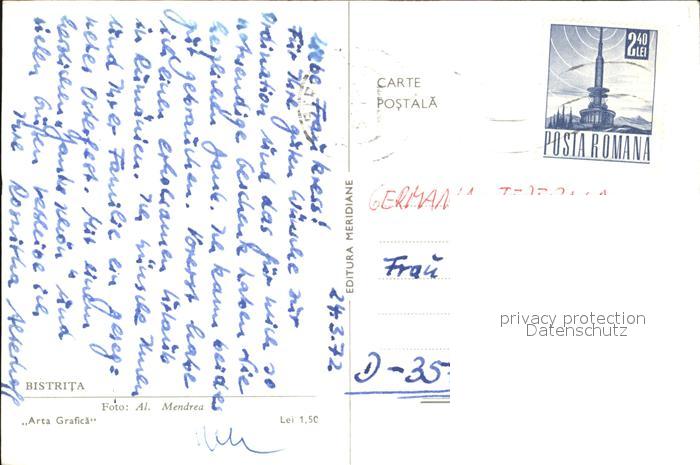 24.3.72
Liebe Frau Kress!
Für Ihre guten Wünsche zur
Ordination und das für mich so
notwendige Geschenk haben Sie
herzlichen Dank. Ich kann beides
gut gebrauchen. Vorerst habe
ich einen erholsamen Urlaub
in Rumänien. Ich wünsche Ihnen
und Ihrer Familie ein geseg-
netes Osterfest. Mit einem
herzlichen "Danke schön" und
vielen Grüßen verbleibe ich
Ihre
BISTRIȚA
Foto: Al. Mendrea
„Arta Grafică“
Lei 1,50
EDITURA MERIDIANE
CARTE
POȘTALĂ
2,40
LEI
POSTA ROMANA
GERMANIA
Frau
D-35
privacy protection
Datenschutz